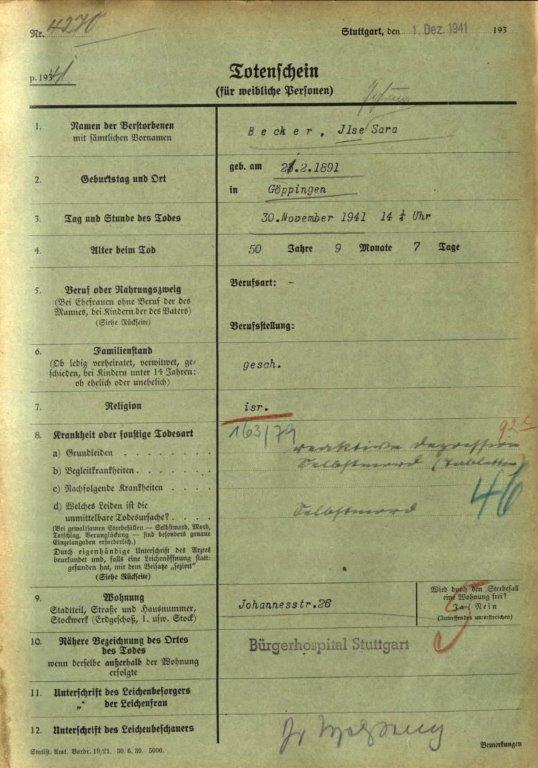 Nr. 4270
Stuttgart, den 1. Dez. 1941 193
p. 1941
Totenschein
(für weibliche Personen)
1. Namen der Verstorbenen
mit sämtlichen Vornamen
Becker, Jlse Sara
2. Geburtstag und Ort
geb. am 2.2.1891
in Göppingen
3. Tag und Stunde des Todes
30. November 1941 14 ¼ Uhr
4. Alter beim Tod
50 Jahre 9 Monate 7 Tage
5. Beruf oder Nahrungszweig
(Bei Ehefrauen ohne Beruf der des
Mannes, bei Kindern der des Vaters)
(Siehe Rückseite)
Berufsart: -
Berufsstellung:
6. Familienstand
(Ob ledig verheiratet, verwitwet, ge-
schieden, bei Kindern unter 14 Jahren:
ob ehelich oder unehelich)
gesch.
7. Religion
isr.
8. Krankheit oder sonstige Todesart
163/79
92c
a) Grundleiden
reaktive Depression
b) Begleitkrankheiten
Selbstmord (Tabletten)
c) Nachfolgende Krankheiten
46
d) Welches Leiden ist die
unmittelbare Todesursache?
Selbstmord
(Bei gewaltsamen Sterbefällen — Selbstmord, Mord,
Totschlag, Verunglückung — sind besonders genaue
Einzelangaben erforderlich.)
Durch eigenhändige Unterschrift des Arztes
beurkundet und, falls eine Leichenöffnung statt-
gefunden hat, mit dem Beisatze „seziert"
(Siehe Rückseite)
9. Wohnung
Stadtteil, Straße und Hausnummer,
Stockwerk (Erdgeschoß, 1. usw. Stock)
Johannesstr. 26
Wird durch den Sterbefall
eine Wohnung frei?
Ja / Nein
(Zutreffendes unterstreichen)
10. Nähere Bezeichnung des Ortes
des Todes
wenn derselbe außerhalb der Wohnung
erfolgte
Bürgerhospital Stuttgart
11. Unterschrift des Leichenbesorgers
„ der Leichenfrau
12. Unterschrift des Leichenbeschauers
Dr
Bemerkungen
Statist. Amt. Vordr. 19/21. 30. 6. 39. 5000.